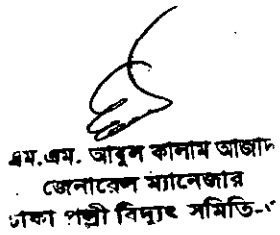 এম.এম. আবুল কালাম আজাদ
জেনারেল ম্যানেজার
ঢাকা পল্লী বিদ্যুৎ সমিতি-